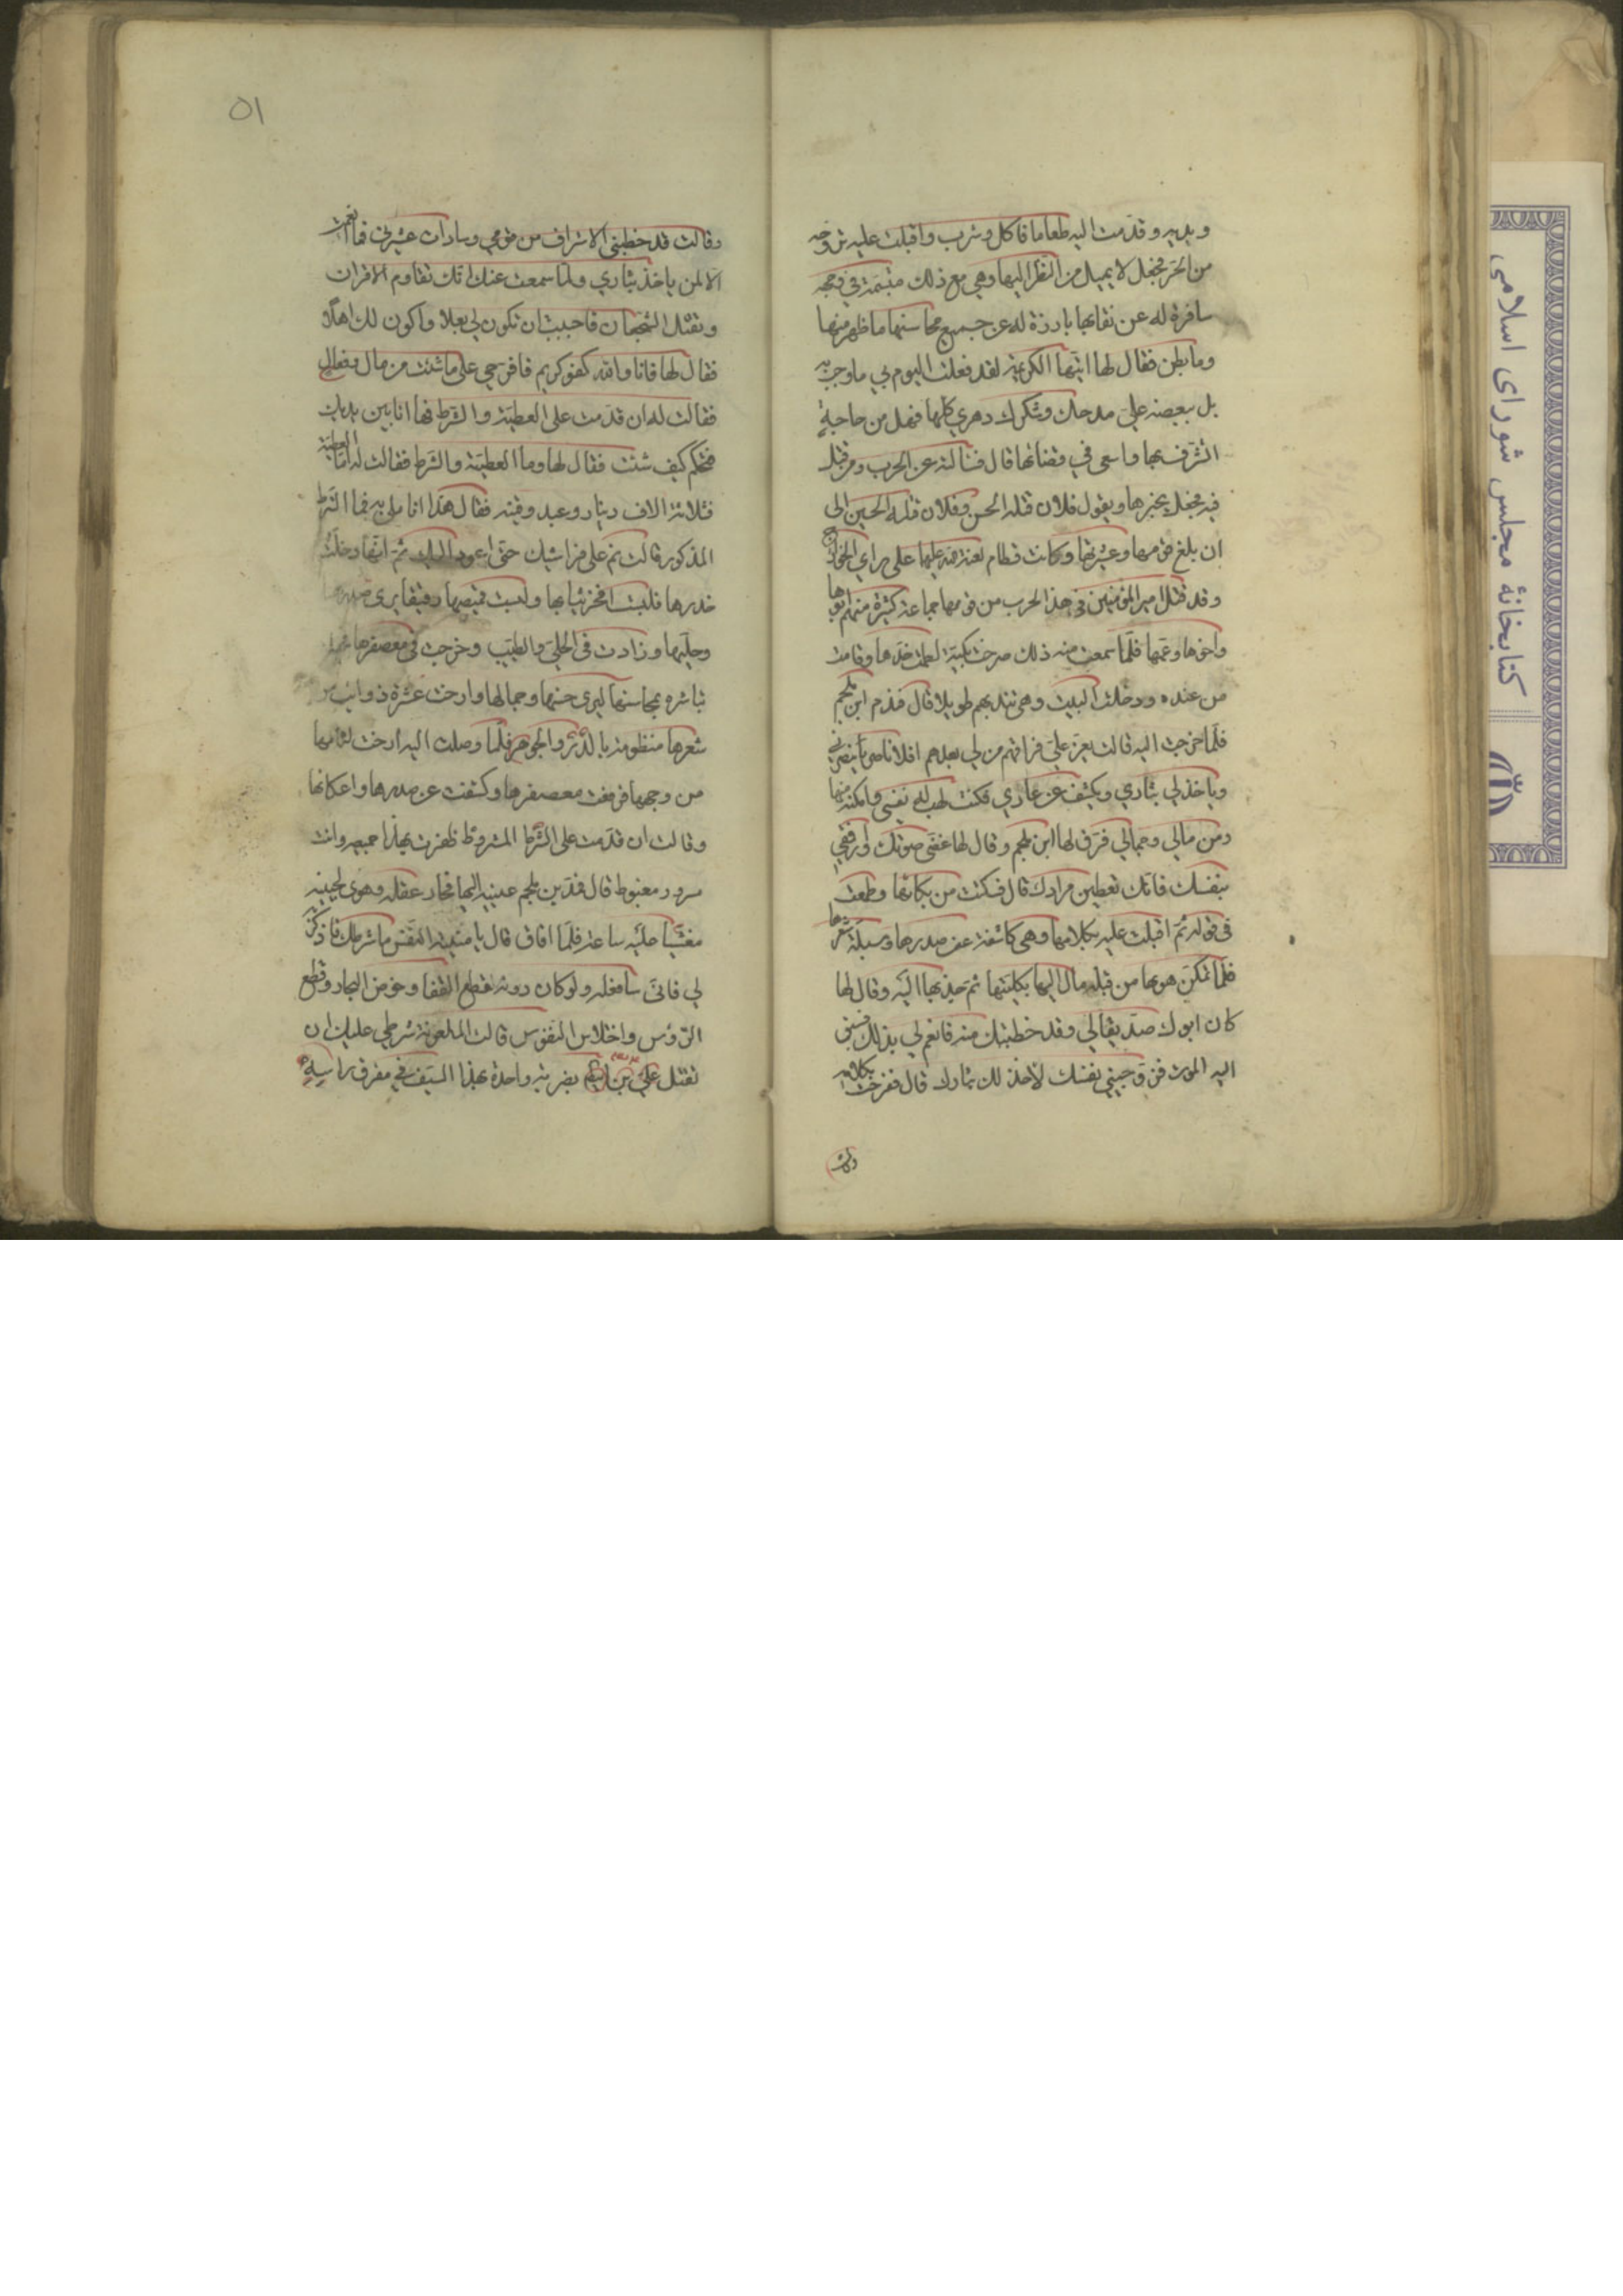 ويديه وقدمت اليه طعاما فاكل وشرب واقبلت عليه تروحه
من الحر فجعل لا يميل من النظر اليها وهي مع ذلك متبسمة في وجهه
سافرة له عن نقابها بارزة له عن جميع محاسنها ما ظهر منها
وما بطن فقال لها ايتها الكريمة لقد فعلت اليوم بي ما وجب به
بل ببعضه علي مدحك وشكرك دهري كلها فهل من حاجة
اتشرف بها واسعى في قضائها قال فسالته عن الحرب ومن قتل
فيه فجعل يخبرها ويقول فلان قتله الحسن وفلان قتله الحسين الى
ان بلغ قومها وعشيرتها وكانت قطام لعنة الله عليها على راي الخوارج
وقد قتل امير المؤمنين في هذا الحرب من قومها جماعة كثيرة منهم ابوها
واخوها وعمها فلما سمعت منه ذلك صرخت باكية لطمت خدها وقامت
من عنده ودخلت البيت وهي تندبهم طويلا قال فندم ابن ملجم
فلما خرجت اليه قالت يعز علي فراقهم من لي بعدهم افلا ناصر ينصرني
وياخذ لي بثاري ويكشف عن عاري فكنت اهب له نفسي وامكنه منها
ومن مالي وجمالي فرق لها ابن ملجم وقال لها غضي صوتك وارفقي
بنفسك فانك تعطين مرادك قال فسكنت من بكائها وطمعت
في قوله ثم اقبلت عليه بكلامها وهي كاشفة عن صدرها ومسبلة شعرها
فلما تمكن هوىها من قبله مال اليها بكليتها ثم جذبها اليه وقال لها
كان ابوك صديقا لي وقد خطبتك منه فانعم لي بذلك فسبق
اليه الموت فزوجيني نفسك لاخذ لك بثارك قال ففرحت بكلامه
وقالت
٥١
وقالت قد خطبني الاشراف من قومي وسادات عشيرتي فما انعمت
الا لمن ياخذ بثاري ولما سمعت عنك انك تقاوم الاقران
وتقتل الشجعان فاحببت ان تكون لي بعلا واكون لك اهلا
فقال لها فانا والله كفو كريم فاقترحي علي ما شئت من مال وفعال
فقالت له ان قدمت على العطية والشرط فها انا بين يديك
فتحكم كيف شئت فقال لها وما العطية والشرط فقالت له اما العطية
فثلاثة الاف دينار وعبد وقينة فقال هذا انا ملي به فما الشرط
المذكور قالت نم على فراشك حتى اعود اليك ثم انها دخلت
خدرها فلبست افخر ثيابها ولبست قميصها رقيقا يرى صدرها
وحليها وزادت في الحلي والطيب وخرجت في معصفرها
تباشره بمحاسنها ليرى حسنها وجمالها وارخت عشرة ذوائب من
شعرها منظومة بالدر والجوهر فلما وصلت اليه ارخت لثامها
من وجهها ورفعت معصفرها وكشفت عن صدرها واعكانها
وقالت ان قدمت على الشرط المشروط ظفرت بهذا جميعه وانت
مسرور مغبوط قال فمد ابن ملجم عينيه اليها فحار عقله وهوى لجنبه
مغشيا عليه ساعة فلما افاق قال يا منية النفس ما شرطك فاذكري
لي فاني سافعله ولو كان دونه قطع القفار وخوض البحار وقطع
الرؤس واختلاس النفوس قالت الملعونة شرطي عليك ان
تقتل علي بن ابيطالب بضربة واحدة بهذا السيف في مفرق راسه
كتابخانهٔ مجلس شورای اسلامی